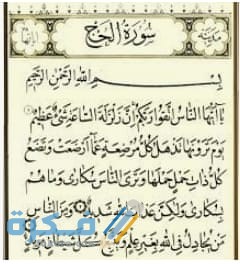 سُورَةُ الْحَجِّ
بِسْمِ اللَّهِ الرَّحْمَٰنِ الرَّحِيمِ
يَا أَيُّهَا النَّاسُ اتَّقُوا رَبَّكُمْ إِنَّ زَلْزَلَةَ السَّاعَةِ شَيْءٌ عَظِيمٌ
يَوْمَ تَرَوْنَهَا تَذْهَلُ كُلُّ مُرْضِعَةٍ عَمَّا أَرْضَعَتْ وَتَضَعُ
كُلُّ ذَاتِ حَمْلٍ حَمْلَهَا وَتَرَى النَّاسَ سُكَارَىٰ وَمَا هُمْ
بِسُكَارَىٰ وَلَٰكِنَّ عَذَابَ اللَّهِ شَدِيدٌ وَمِنَ النَّاسِ
مَنْ يُجَادِلُ فِي اللَّهِ بِغَيْرِ عِلْمٍ وَيَتَّبِعُ كُلَّ شَيْطَانٍ مَرِيدٍ
فكرة